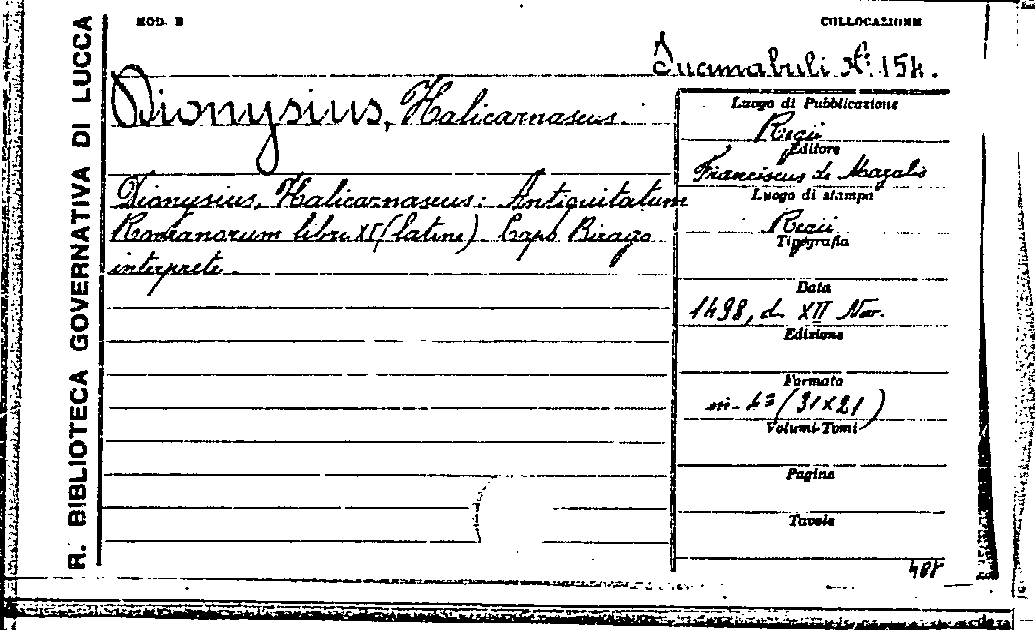 MOD. B
COLLOCAZIONE
R. BIBLIOTECA GOVERNATIVA DI LUCCA
Incunabuli N.º 154.
Dionysius, Halicarnaseus.
Dionysius, Halicarnaseus: Antiquitatum
Romanorum libri XI (latine). Lapo Birago
interprete.
Luogo di Pubblicazione
Regii
Editore
Franciscus de Mazalis
Luogo di stampa
Regii
Tipografia
Data
1498, d. XII Nov.
Edizione
Formato
in-4º (31x21)
Volumi-Tomi
Pagine
Tavole